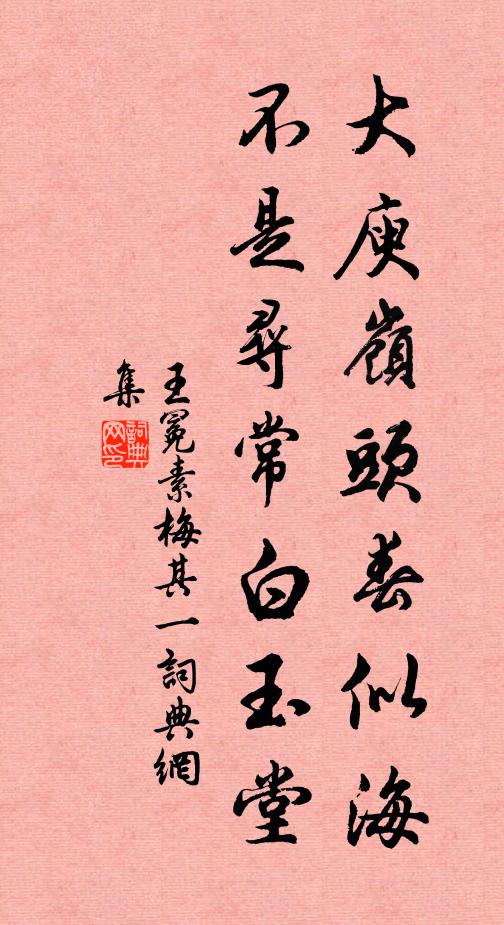 大庾嶺頭春似海
不是尋常白玉堂
王冕素梅其一詞典網
集
詞典網印